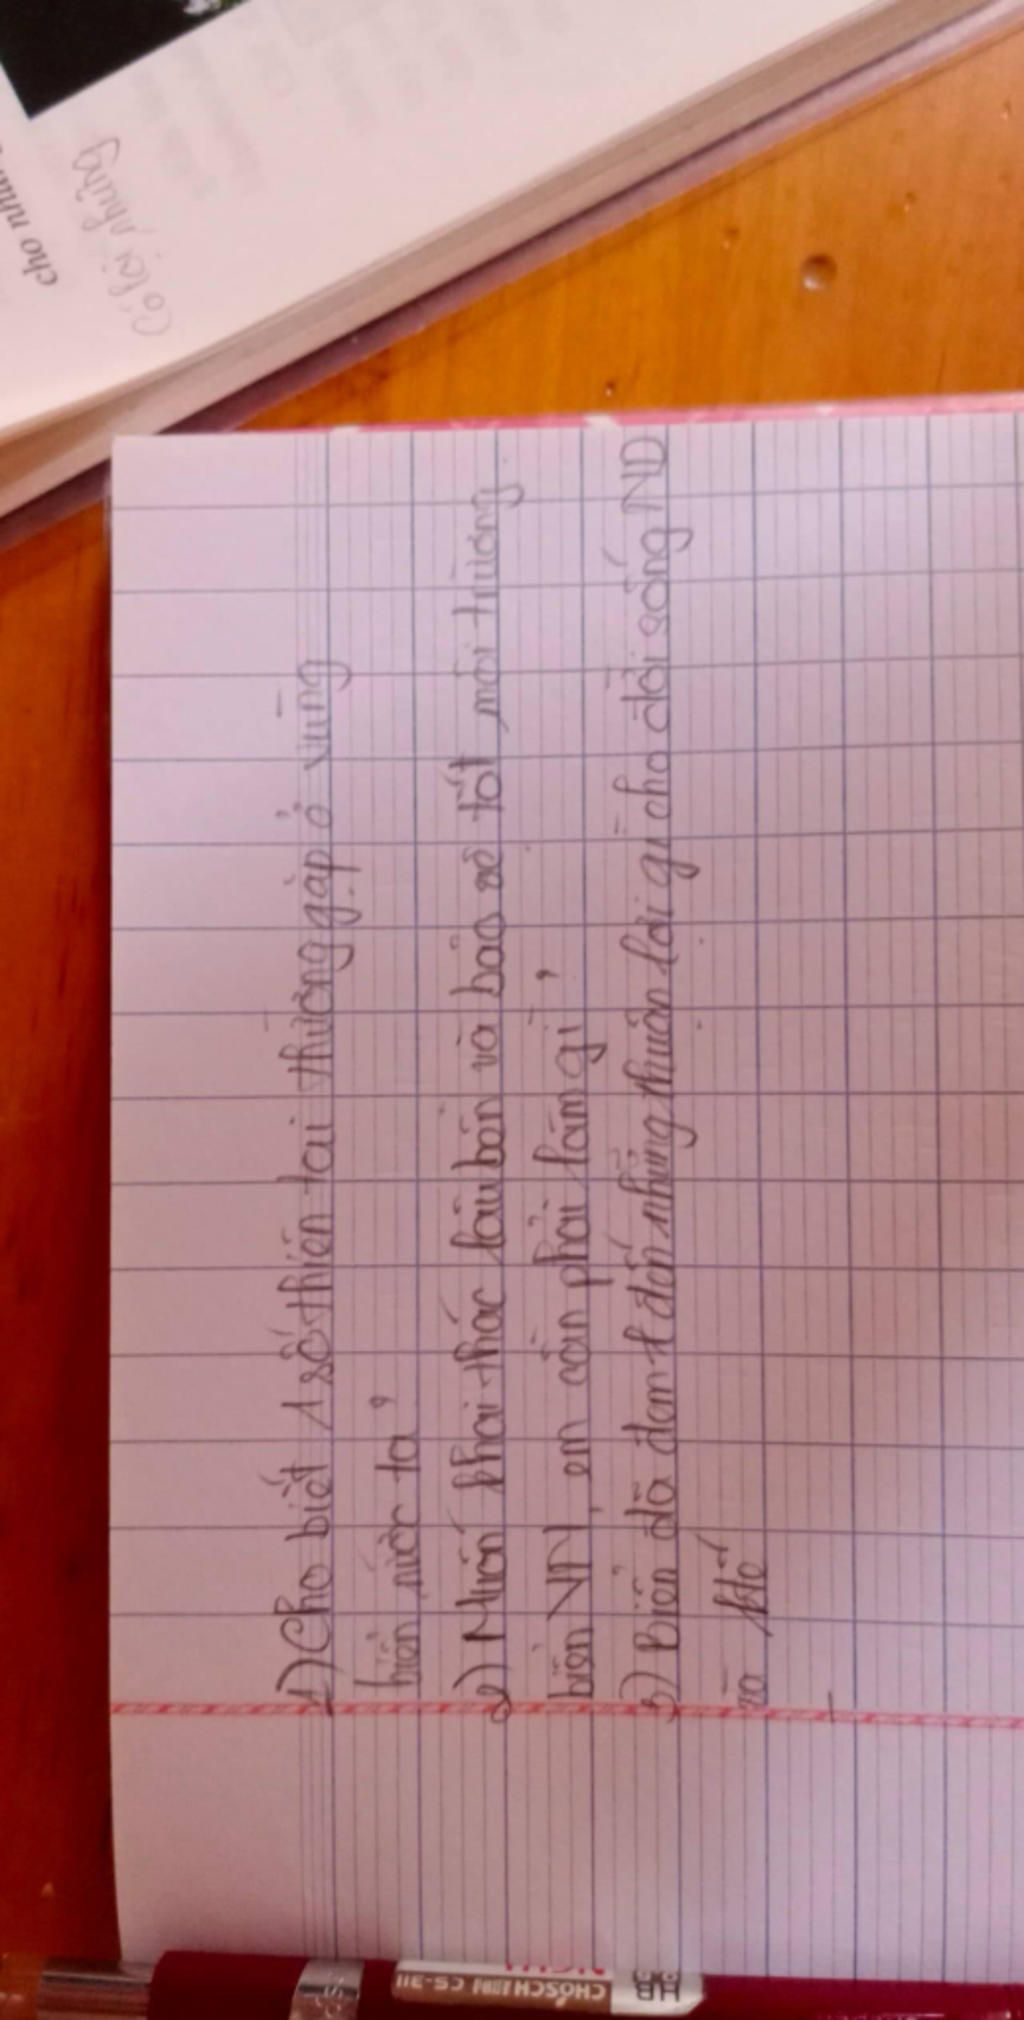 cho nhân
Có lợi những
1) Cho biết 1 số thiên tai thường gặp ở vùng
biển nước ta?
2) Muốn khai thác lâu bền và bảo vệ tốt môi trường
biển VN, em cần phải làm gì?
3) Biển đã đem lại đến những thuận lợi gì cho đời sống ND
và ktế
CHOSCH CS-311
HB